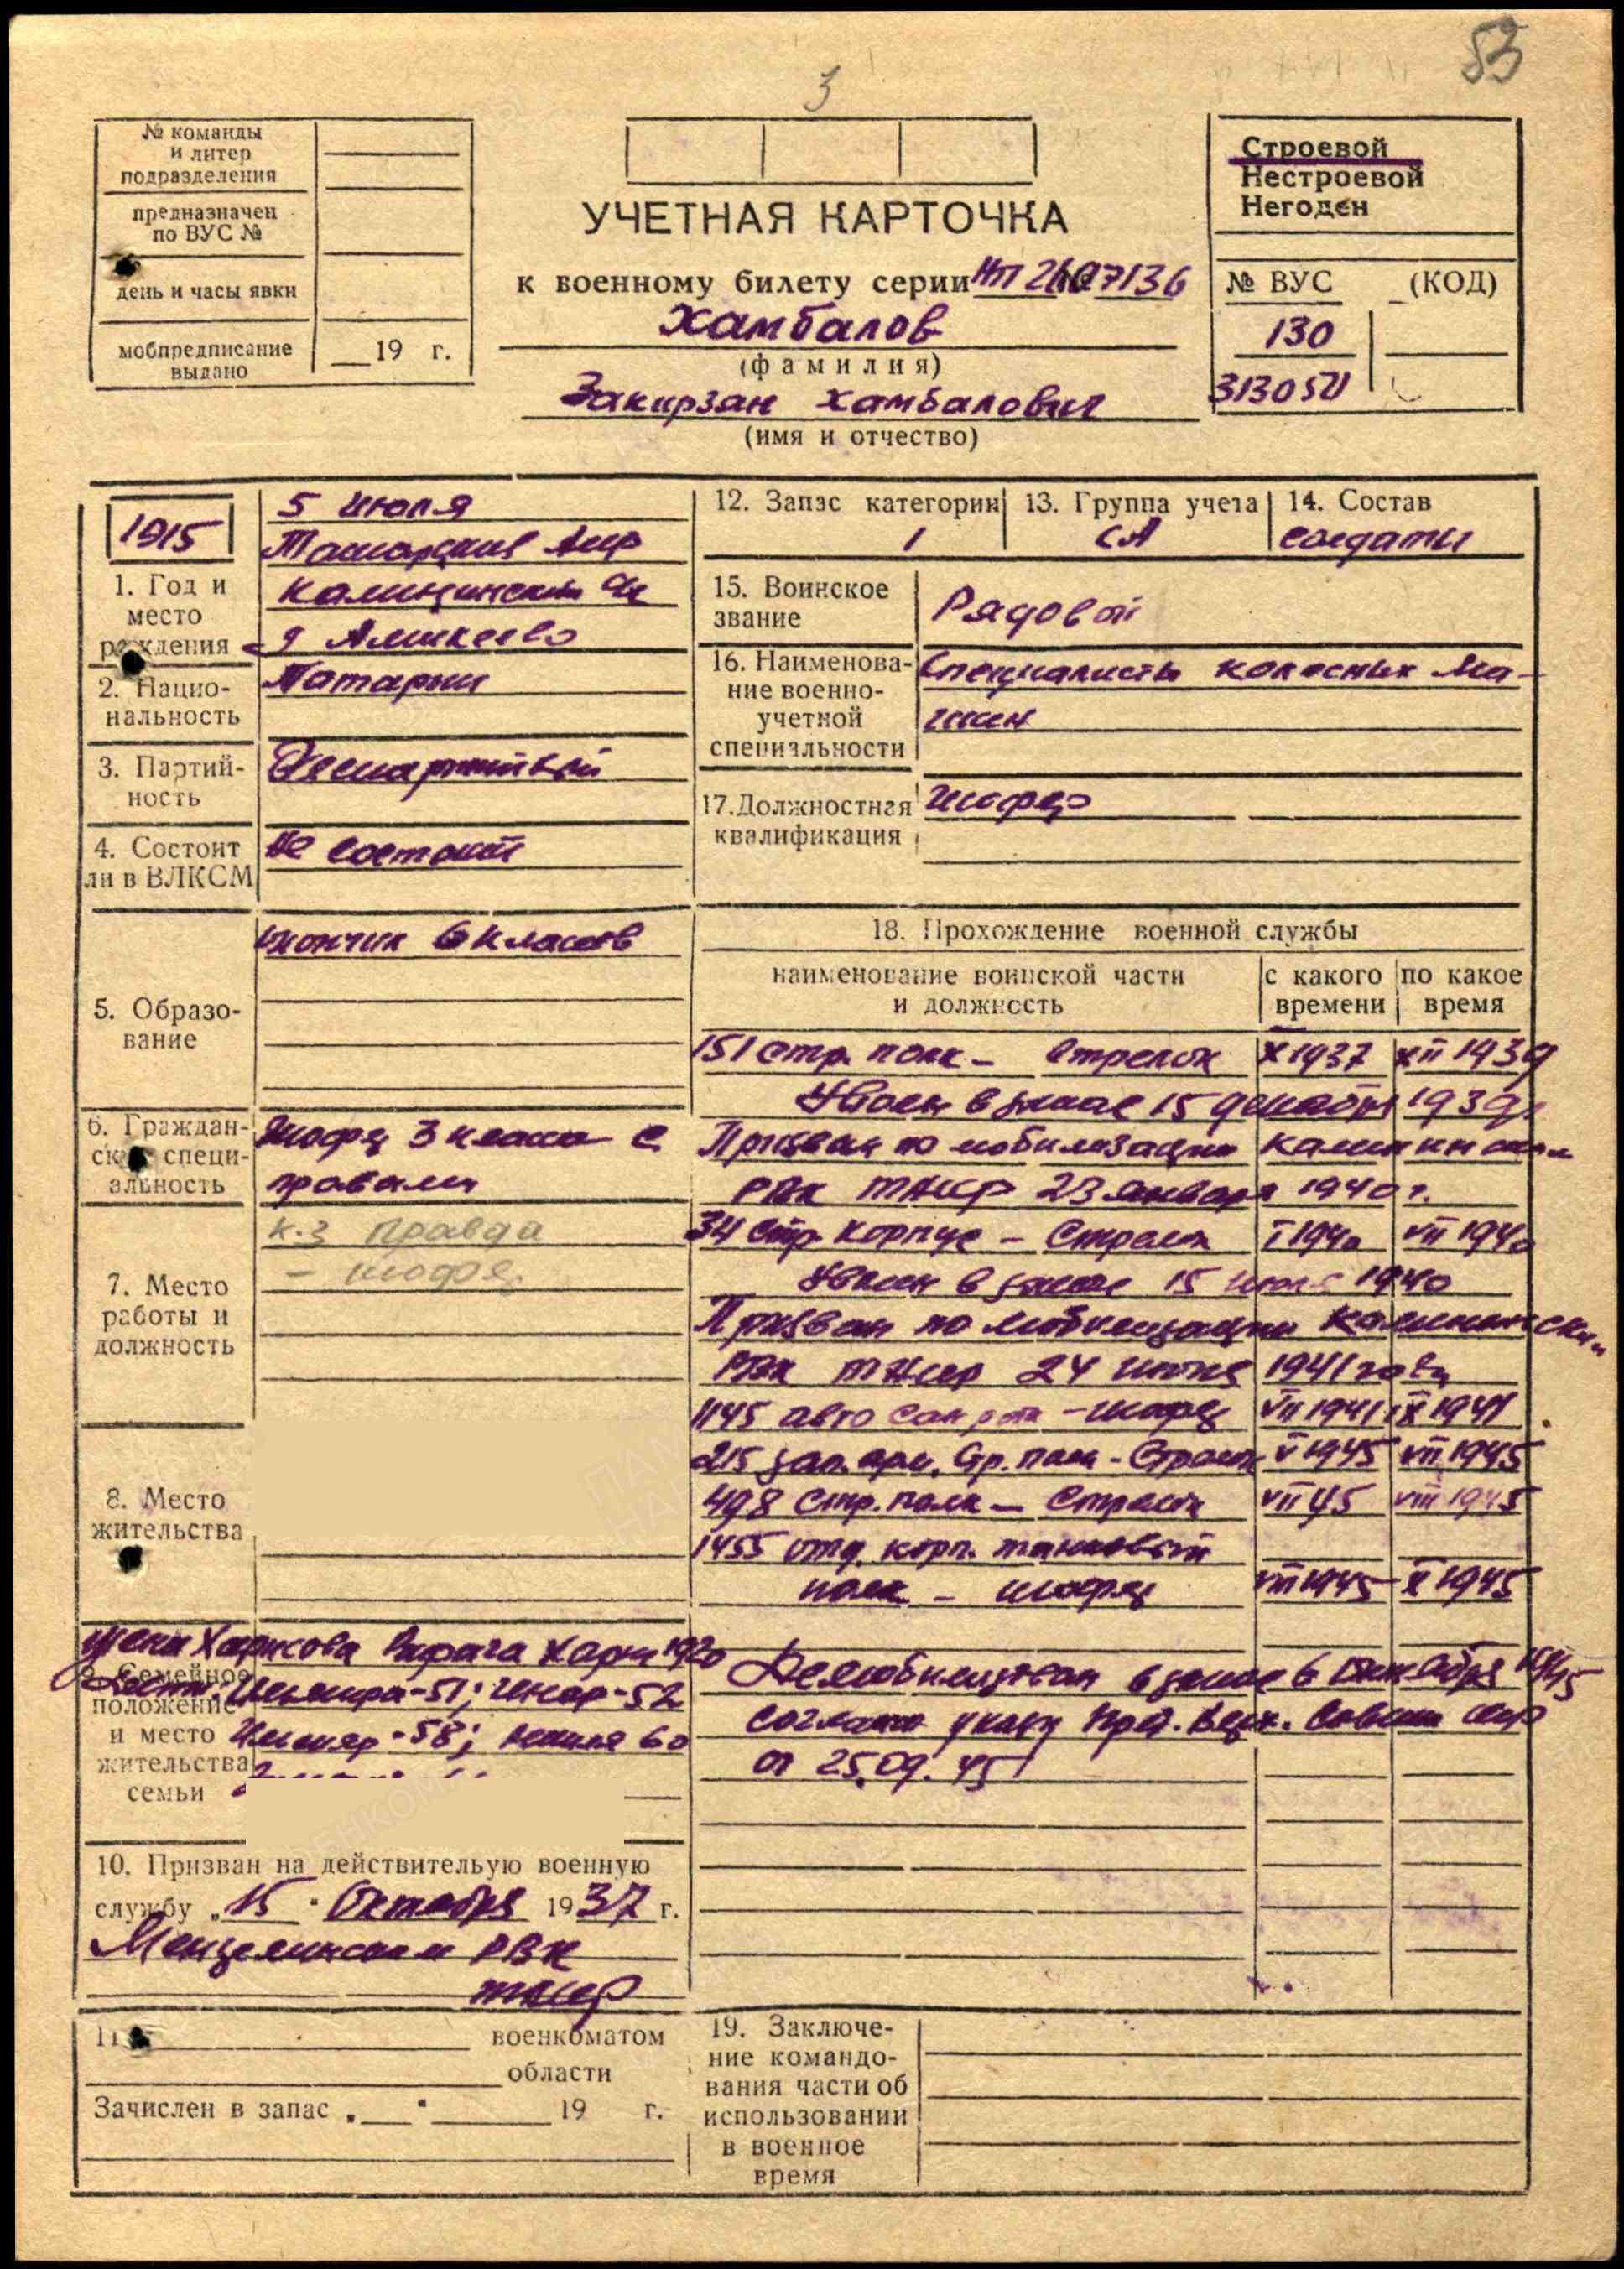 53
3
№ команды
и литер
подразделения
предназначен
по ВУС №
день и часы явки
мобпредписание
выдано
19 г.
УЧЕТНАЯ КАРТОЧКА
к военному билету серии НП 2607136
Хамбалов
(фамилия)
Закирзан Хамбалович
(имя и отчество)
Строевой
Нестроевой
Негоден
№ ВУС (КОД)
130
1915
1. Год и
место
рождения
5 июля
Татарский АССР
Калининский
д Аликеево
2. Нацио-
нальность
Татарин
3. Партий-
ность
Беспартийный
4. Состоит
ли в ВЛКСМ
Не состоит
5. Образо-
вание
кончил 6 классов
6. Граждан-
ская специ-
альность
Шофер 3 класса с
правами
7. Место
работы и
должность
к-з Правда
- шофер
8. Место
жительства
9. Семейное
положение
и место
жительства
семьи
жена Харисова 1920
Дети: -51; -52
-58; 60
10. Призван на действительую военную
службу „15" Октября 1937 г.
Мензелинским РВК
ТАССР
11.
военкоматом
области
Зачислен в запас „ " 19 г.
12. Запас категории
1
13. Группа учета
СА
14. Состав
солдаты
15. Воинское
звание
Рядовой
16. Наименова-
ние военно-
учетной
специальности
Специалисты колесных ма-
шин
17. Должностная
квалификация
шофер
18. Прохождение военной службы
наименование воинской части
и должность
с какого
времени
по какое
время
151 стр. полк - стрелок X 1937 XII 1939
Уволен в запас 15 декабря 1939г
Призван по мобилизации Калининским
РВК ТАССР 23 января 1940 г.
34 стр. корпус - Стрелок I 1940 VII 1940
Уволен в запас 15 июля 1940
Призван по мобилизации Калининским
РВК ТАССР 24 июня 1941 года
1145 авто сан рота - шофер VII 1941 IX 1941
215 зап. арм. Стр. полк - Стрелок V 1945 VII 1945
498 Стр. полк - Стрелок VII 45 VIII 1945
1455 отд. корп. танковый
полк - шофер VIII 1945 X 1945
Демобилизован в запас 6 1945
согласно указу През. Верх. Совета СССР
от 25.09.45
19. Заключе-
ние командо-
вания части об
использовании
в военное
время